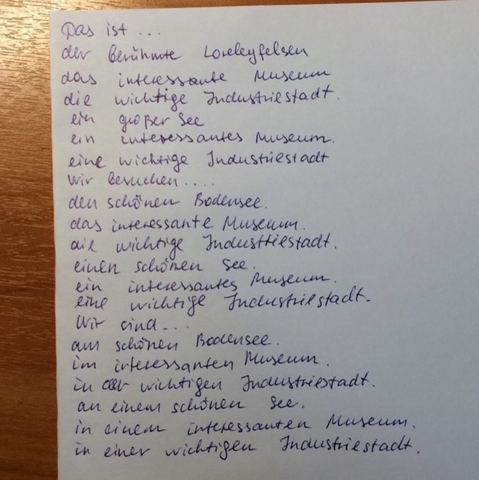 Das ist ...
der berühmte Loreleyfelsen
das interessante Museum
die wichtige Industriestadt.
ein großer See
ein interessantes Museum.
eine wichtige Industriestadt
Wir besuchen....
den schönen Bodensee.
das interessante Museum.
die wichtige Industriestadt.
einen schönen See.
ein interessantes Museum.
eine wichtige Industriestadt.
Wir sind...
am schönen Bodensee.
im interessanten Museum.
in der wichtigen Industriestadt.
an einem schönen See.
in einem interessanten Museum.
in einer wichtigen Industriestadt.